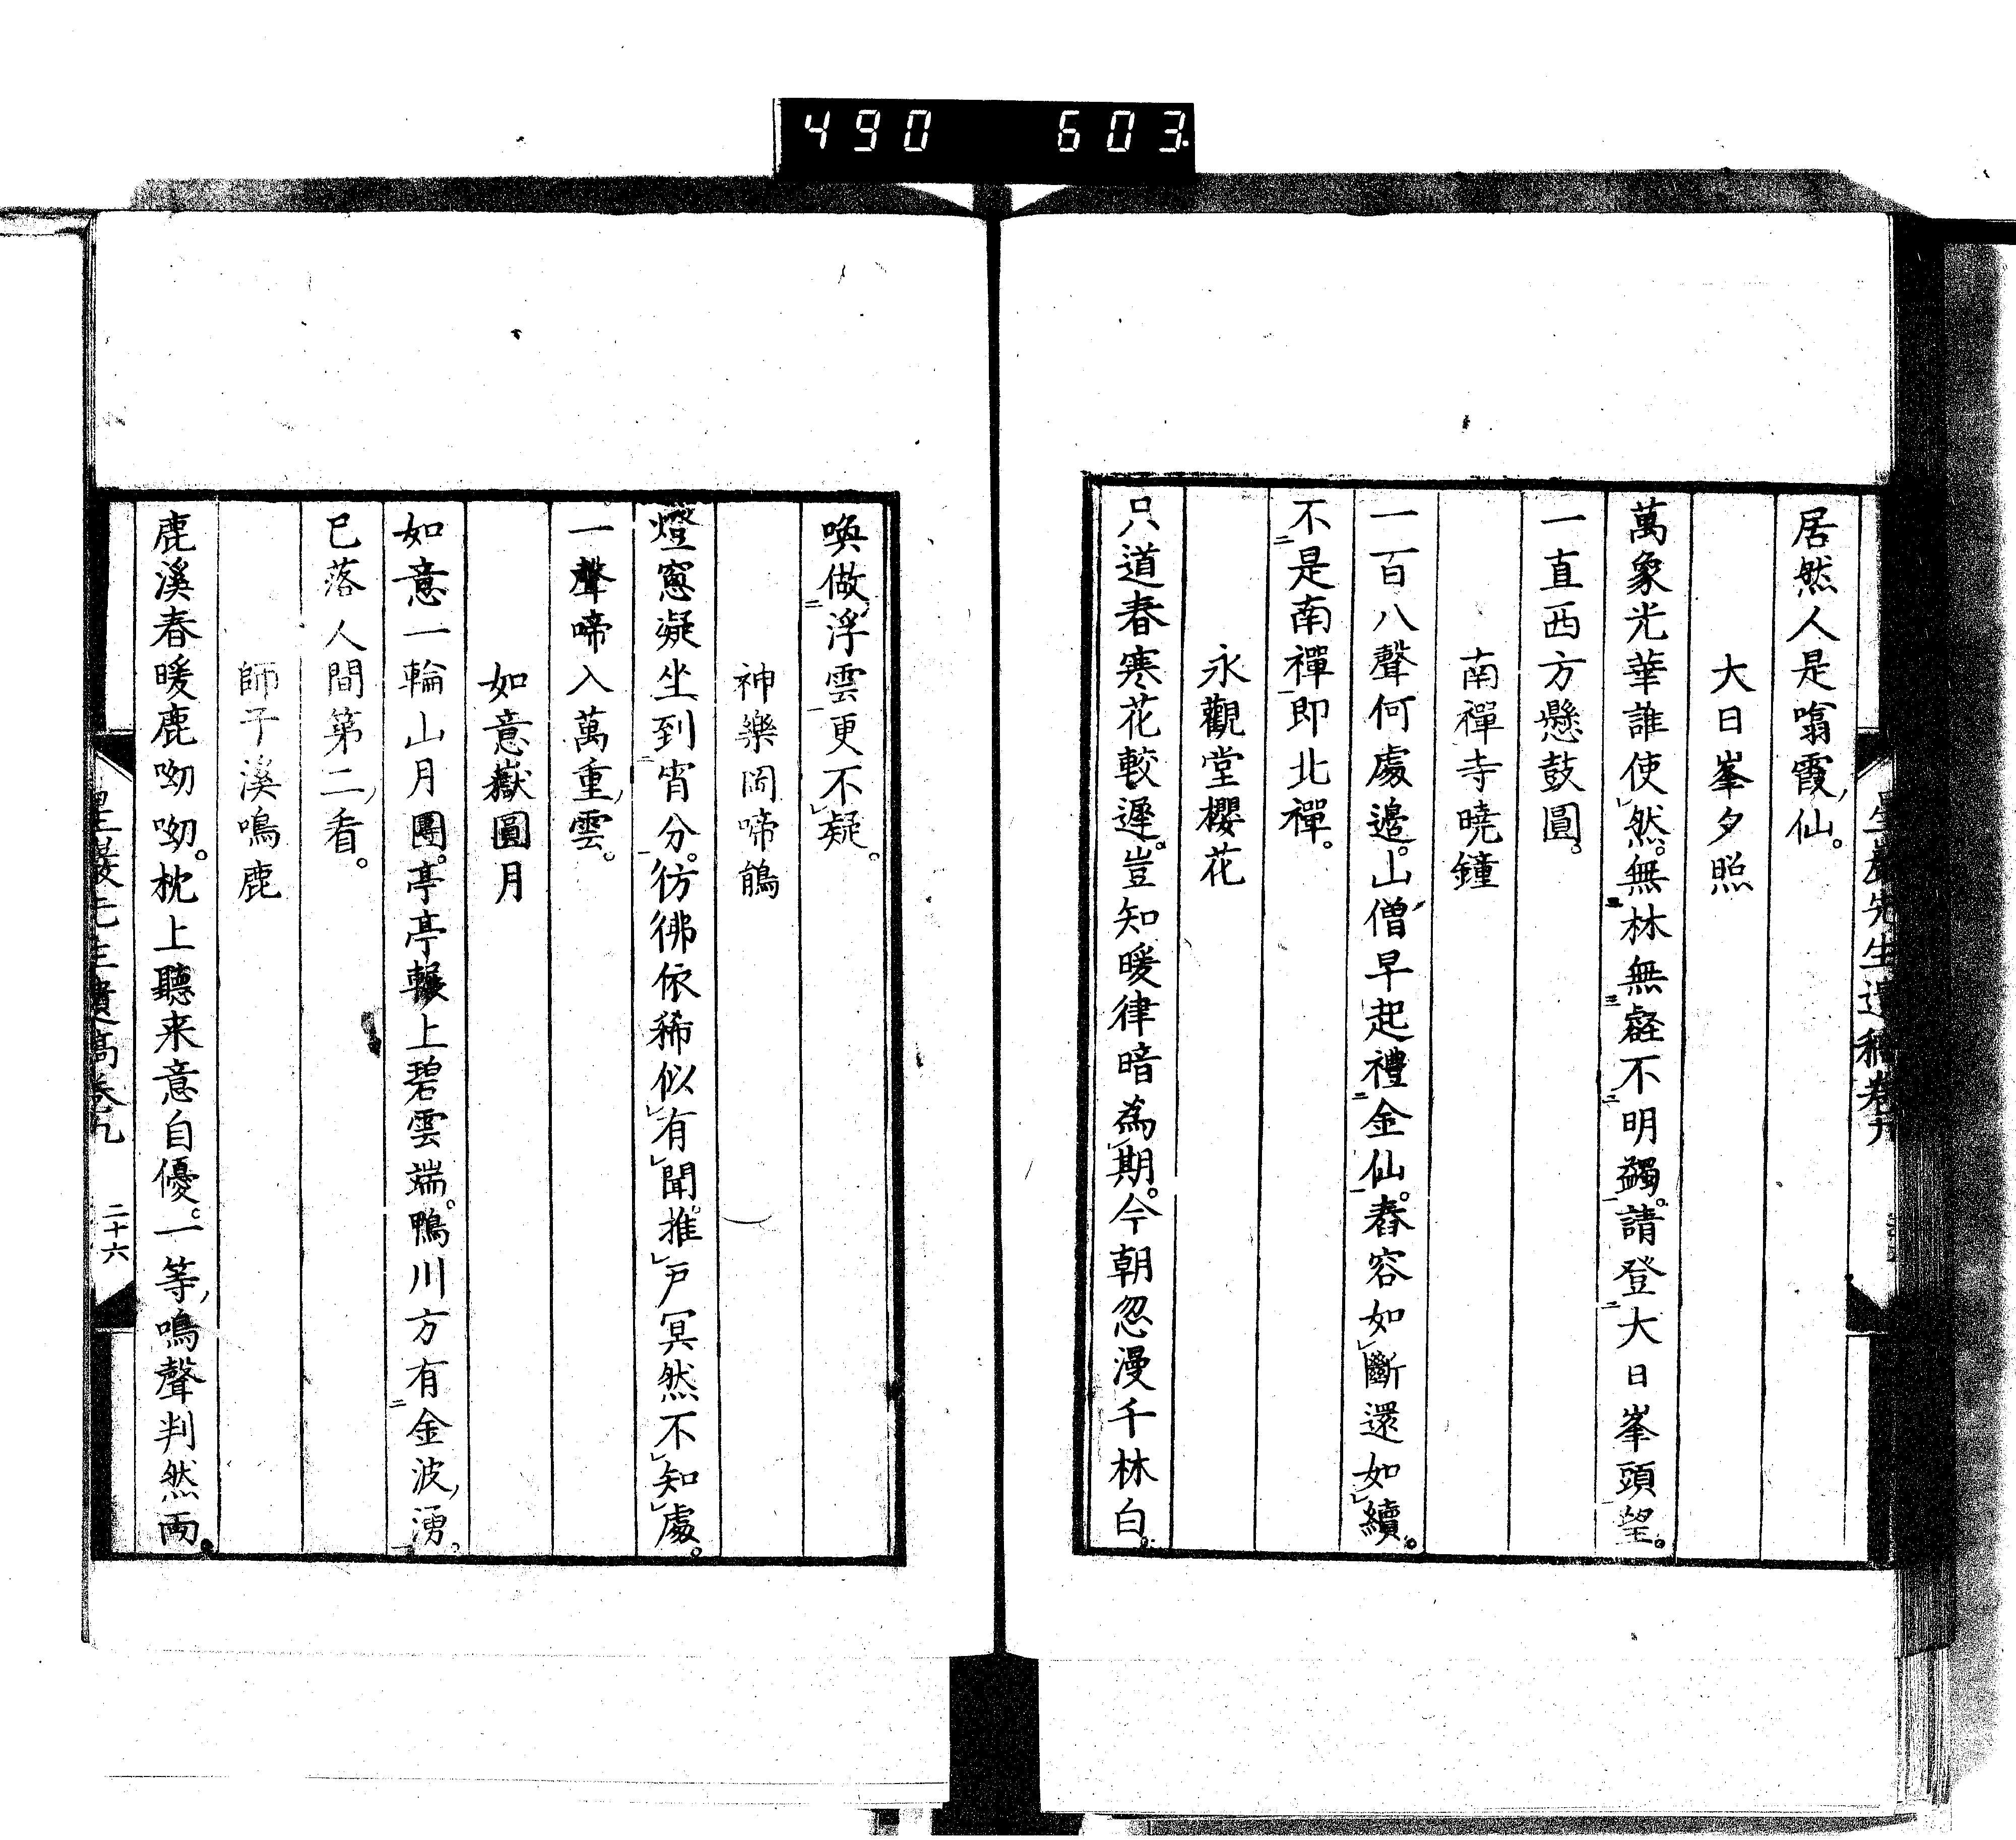 490 603
居然人是噏霞仙。
大日峯夕照
萬象光華誰使然。無林無壑不明蠲。請登大日峯頭望。
一直西方懸鼓圓。
南禪寺曉鐘
一百八聲何處邉。山僧早起禮金仙。舂容如斷還如續。
不是南禪即北禪。
永觀堂櫻花
只道春寒花較遲。豈知暖律暗為期。今朝忽漫千林白。
喚做浮雲更不疑。
神樂岡啼鵑
燈窻凝坐到宵分。彷彿依稀似有聞。推戸冥然不知處。
一聲啼入萬重雲。
如意嶽圓月
如意一輪山月團。亭亭輾上碧雲端。鴨川方有金波湧。
已落人間第二看。
師子溪鳴鹿
鹿溪春暖鹿呦呦。枕上聽来意自優。一等鳴聲判然兩。
先生遺稿卷九 二十六